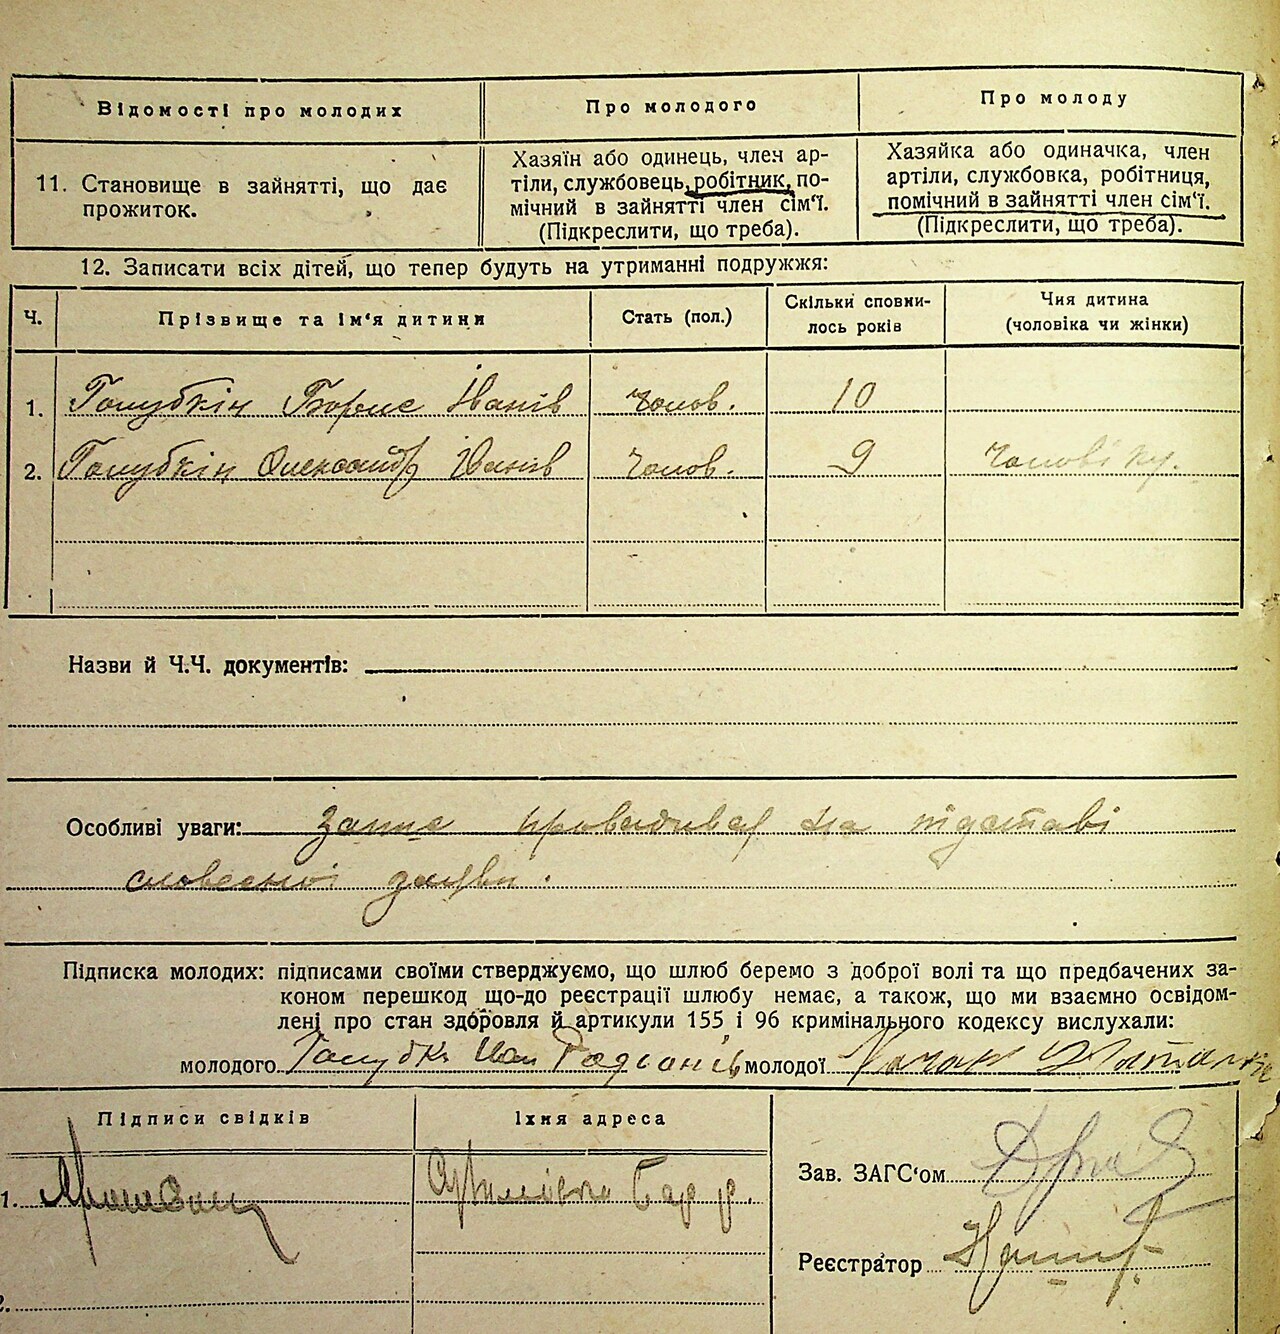 Відомості про молодих
Про молодого
Про молоду
11. Становище в зайнятті, що дає
прожиток.
Хазяїн або одинець, член ар-
тіли, службовець, робітник, по-
мічний в зайнятті член сім‘ї.
(Підкреслити, що треба).
Хазяйка або одиначка, член
артіли, службовка, робітниця,
помічний в зайнятті член сім‘ї.
(Підкреслити, що треба).
12. Записати всіх дітей, що тепер будуть на утриманні подружжя:
Ч.
Прізвище та ім‘я дитини
Стать (пол.)
Скільки сповни-
лось років
Чия дитина
(чоловіка чи жінки)
1. Голубкін Борис Іванів чолов. 10
2. Голубкін Олександр Іванів чолов. 9 чоловіку.
Назви й Ч.Ч. документів:
Особливі уваги: запис провадився на підставі
словесної заяви.
Підписка молодих: підписами своїми стверджуємо, що шлюб беремо з доброї волі та що предбачених за-
коном перешкод що-до реєстрації шлюбу немає, а також, що ми взаємно освідом-
лені про стан здоровля й артикули 155 і 96 кримінального кодексу вислухали:
молодого Голубкі Іван Родіонів молодої
Підписи свідків
Їхня адреса
1.
2.
Зав. ЗАГС‘ом
Реєстратор